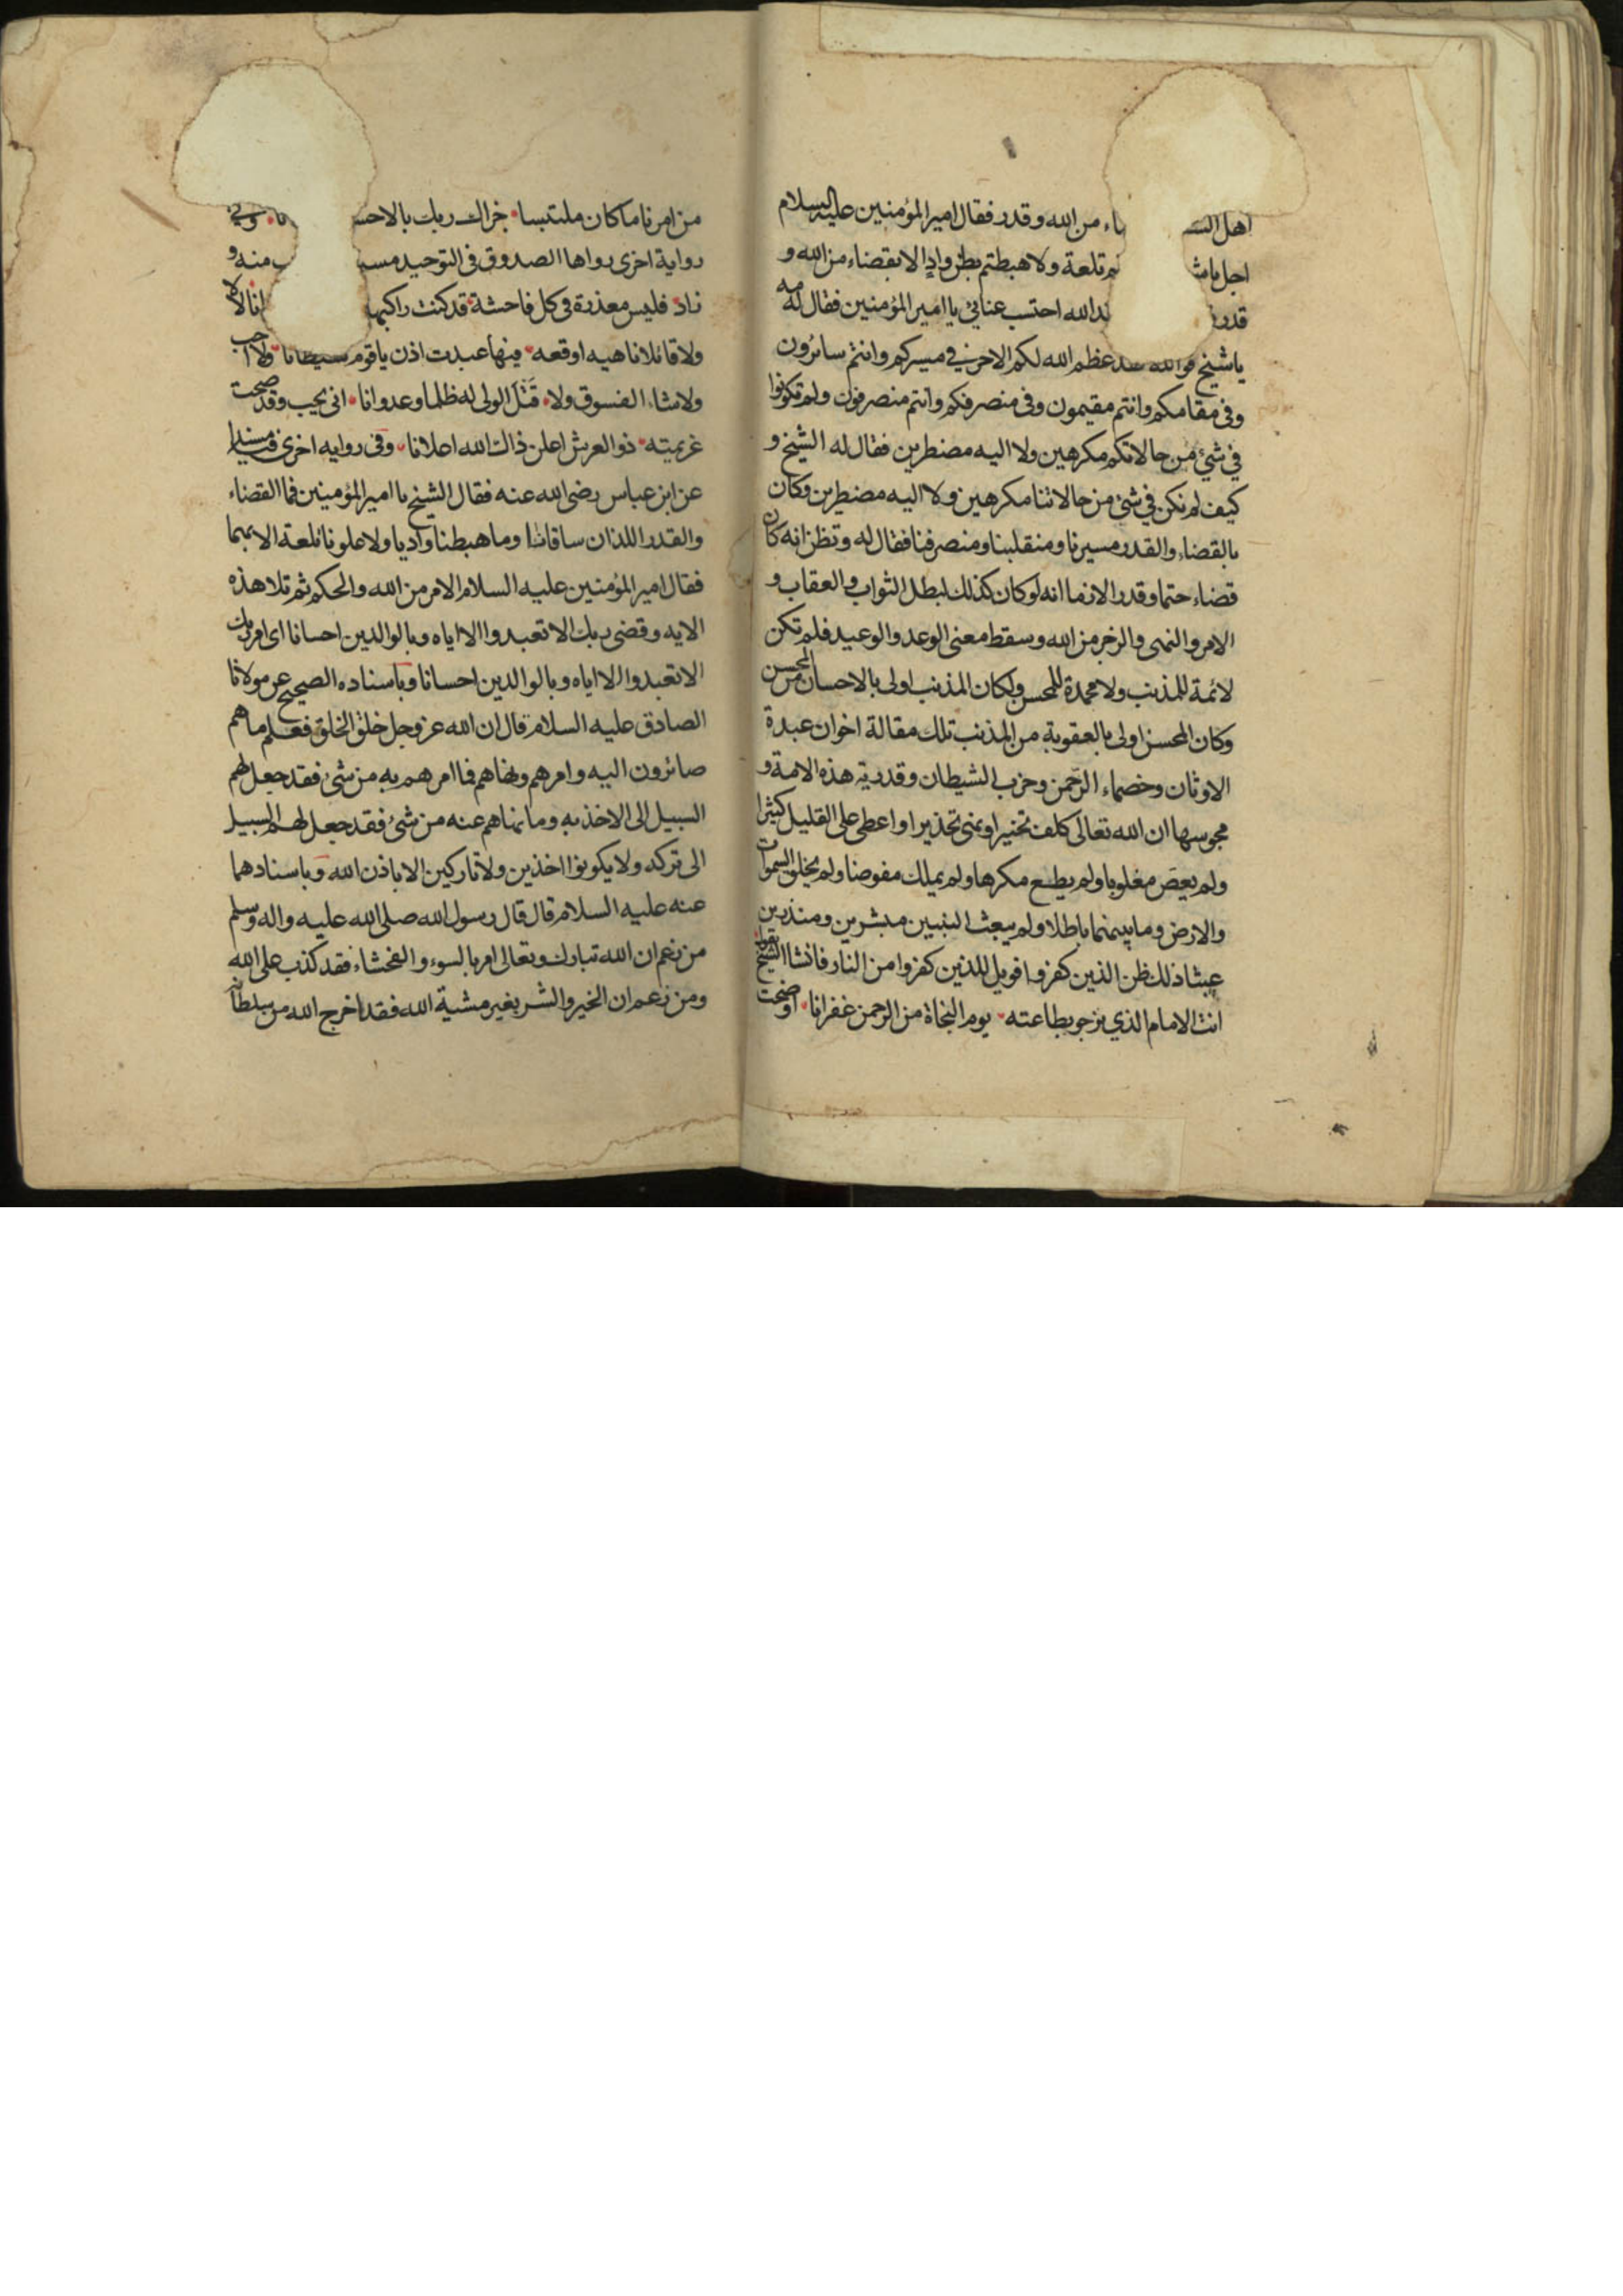 اهل الشـ ـاء من الله وقدر فقال امير المؤمنين عليه السلام
اجل يا شـ ـم تلعة ولا هبطتم بطن واد الا بقضاء من الله و
قدر ـد الله احتسب عنائي يا امير المؤمنين فقال له مه
يا شيخ فوالله عظم الله لكم الاجر في مسيركم وانتم سائرون
وفي مقامكم وانتم مقيمون وفي منصرفكم وانتم منصرفون ولم تكونوا
في شيء من حالاتكم مكرهين ولا اليه مضطرين فقال له الشيخ و
كيف لم نكن في شيء من حالاتنا مكرهين ولا اليه مضطرين وكان
بالقضاء والقدر مسيرنا ومنقلبنا ومنصرفنا فقال له وتظن انه كان
قضاء حتما وقدرا لازما انه لو كان كذلك لبطل الثواب والعقاب و
الامر والنهى والزجر من الله وسقط معنى الوعد والوعيد فلم تكن
لائمة للمذنب ولا محمدة للمحسن ولكان المذنب اولى بالاحسان من المحسن
وكان المحسن اولى بالعقوبة من المذنب تلك مقالة اخوان عبدة
الاوثان وخصماء الرحمن وحزب الشيطان وقدرية هذه الامة و
مجوسها ان الله تعالى كلف تخييرا ونهى تحذيرا واعطى على القليل كثيرا
ولم يعص مغلوبا ولم يطع مكرها ولم يملك مفوضا ولم يخلق السموات
والارض وما بينهما باطلا ولم يبعث النبيين مبشرين ومنذرين
عبثا ذلك ظن الذين كفروا فويل للذين كفروا من النار فانشا الشيخ يقول
انت الامام الذي نرجو بطاعته يوم النجاة من الرحمن غفرانا اوضحت
من امرنا ما كان ملتبسا جزاك ربك بالاحسـ ـنا وفي
رواية اخرى رواها الصدوق في التوحيد ـب منه و
زاد فليس معذرة في كل فاحشة قد كنت راكبها لا
ولا قائلا ناهيه اوقعه فيها عبدت اذن يا قوم شيطانا ولا احب
ولا شاء الفسوق ولا قتل الولى له ظلما وعدوانا انى يحب وقد صحت
عزيمته ذو العرش اعلن ذاك الله اعلانا وفى روايه اخرى
عن ابن عباس رضى الله عنه فقال الشيخ يا امير المؤمنين فما القضاء
والقدر اللذان ساقانا وما هبطنا واديا ولا علونا تلعة الا بهما
فقال امير المؤمنين عليه السلام الامر من الله والحكم ثم تلا هذه
الايه وقضى ربك الا تعبدوا الا اياه وبالوالدين احسانا اى امر ربك
الا تعبدوا الا اياه وبالوالدين احسانا وباسناده الصحيح عن مولانا
الصادق عليه السلام قال ان الله عز وجل خلق الخلق فعلم ما هم
صائرون اليه وامرهم ونهاهم فما امرهم به من شئ فقد جعل لهم
السبيل الى الاخذ به وما نهاهم عنه من شئ فقد جعل لهم السبيل
الى تركه ولا يكونوا اخذين ولا تاركين الا باذن الله وباسنادهما
عنه عليه السلام قال قال رسول الله صلى الله عليه واله وسلم
من زعم ان الله تبارك وتعالى امر بالسوء والفحشاء فقد كذب على الله
ومن زعم ان الخير والشر بغير مشية الله فقد اخرج الله من سلطانه